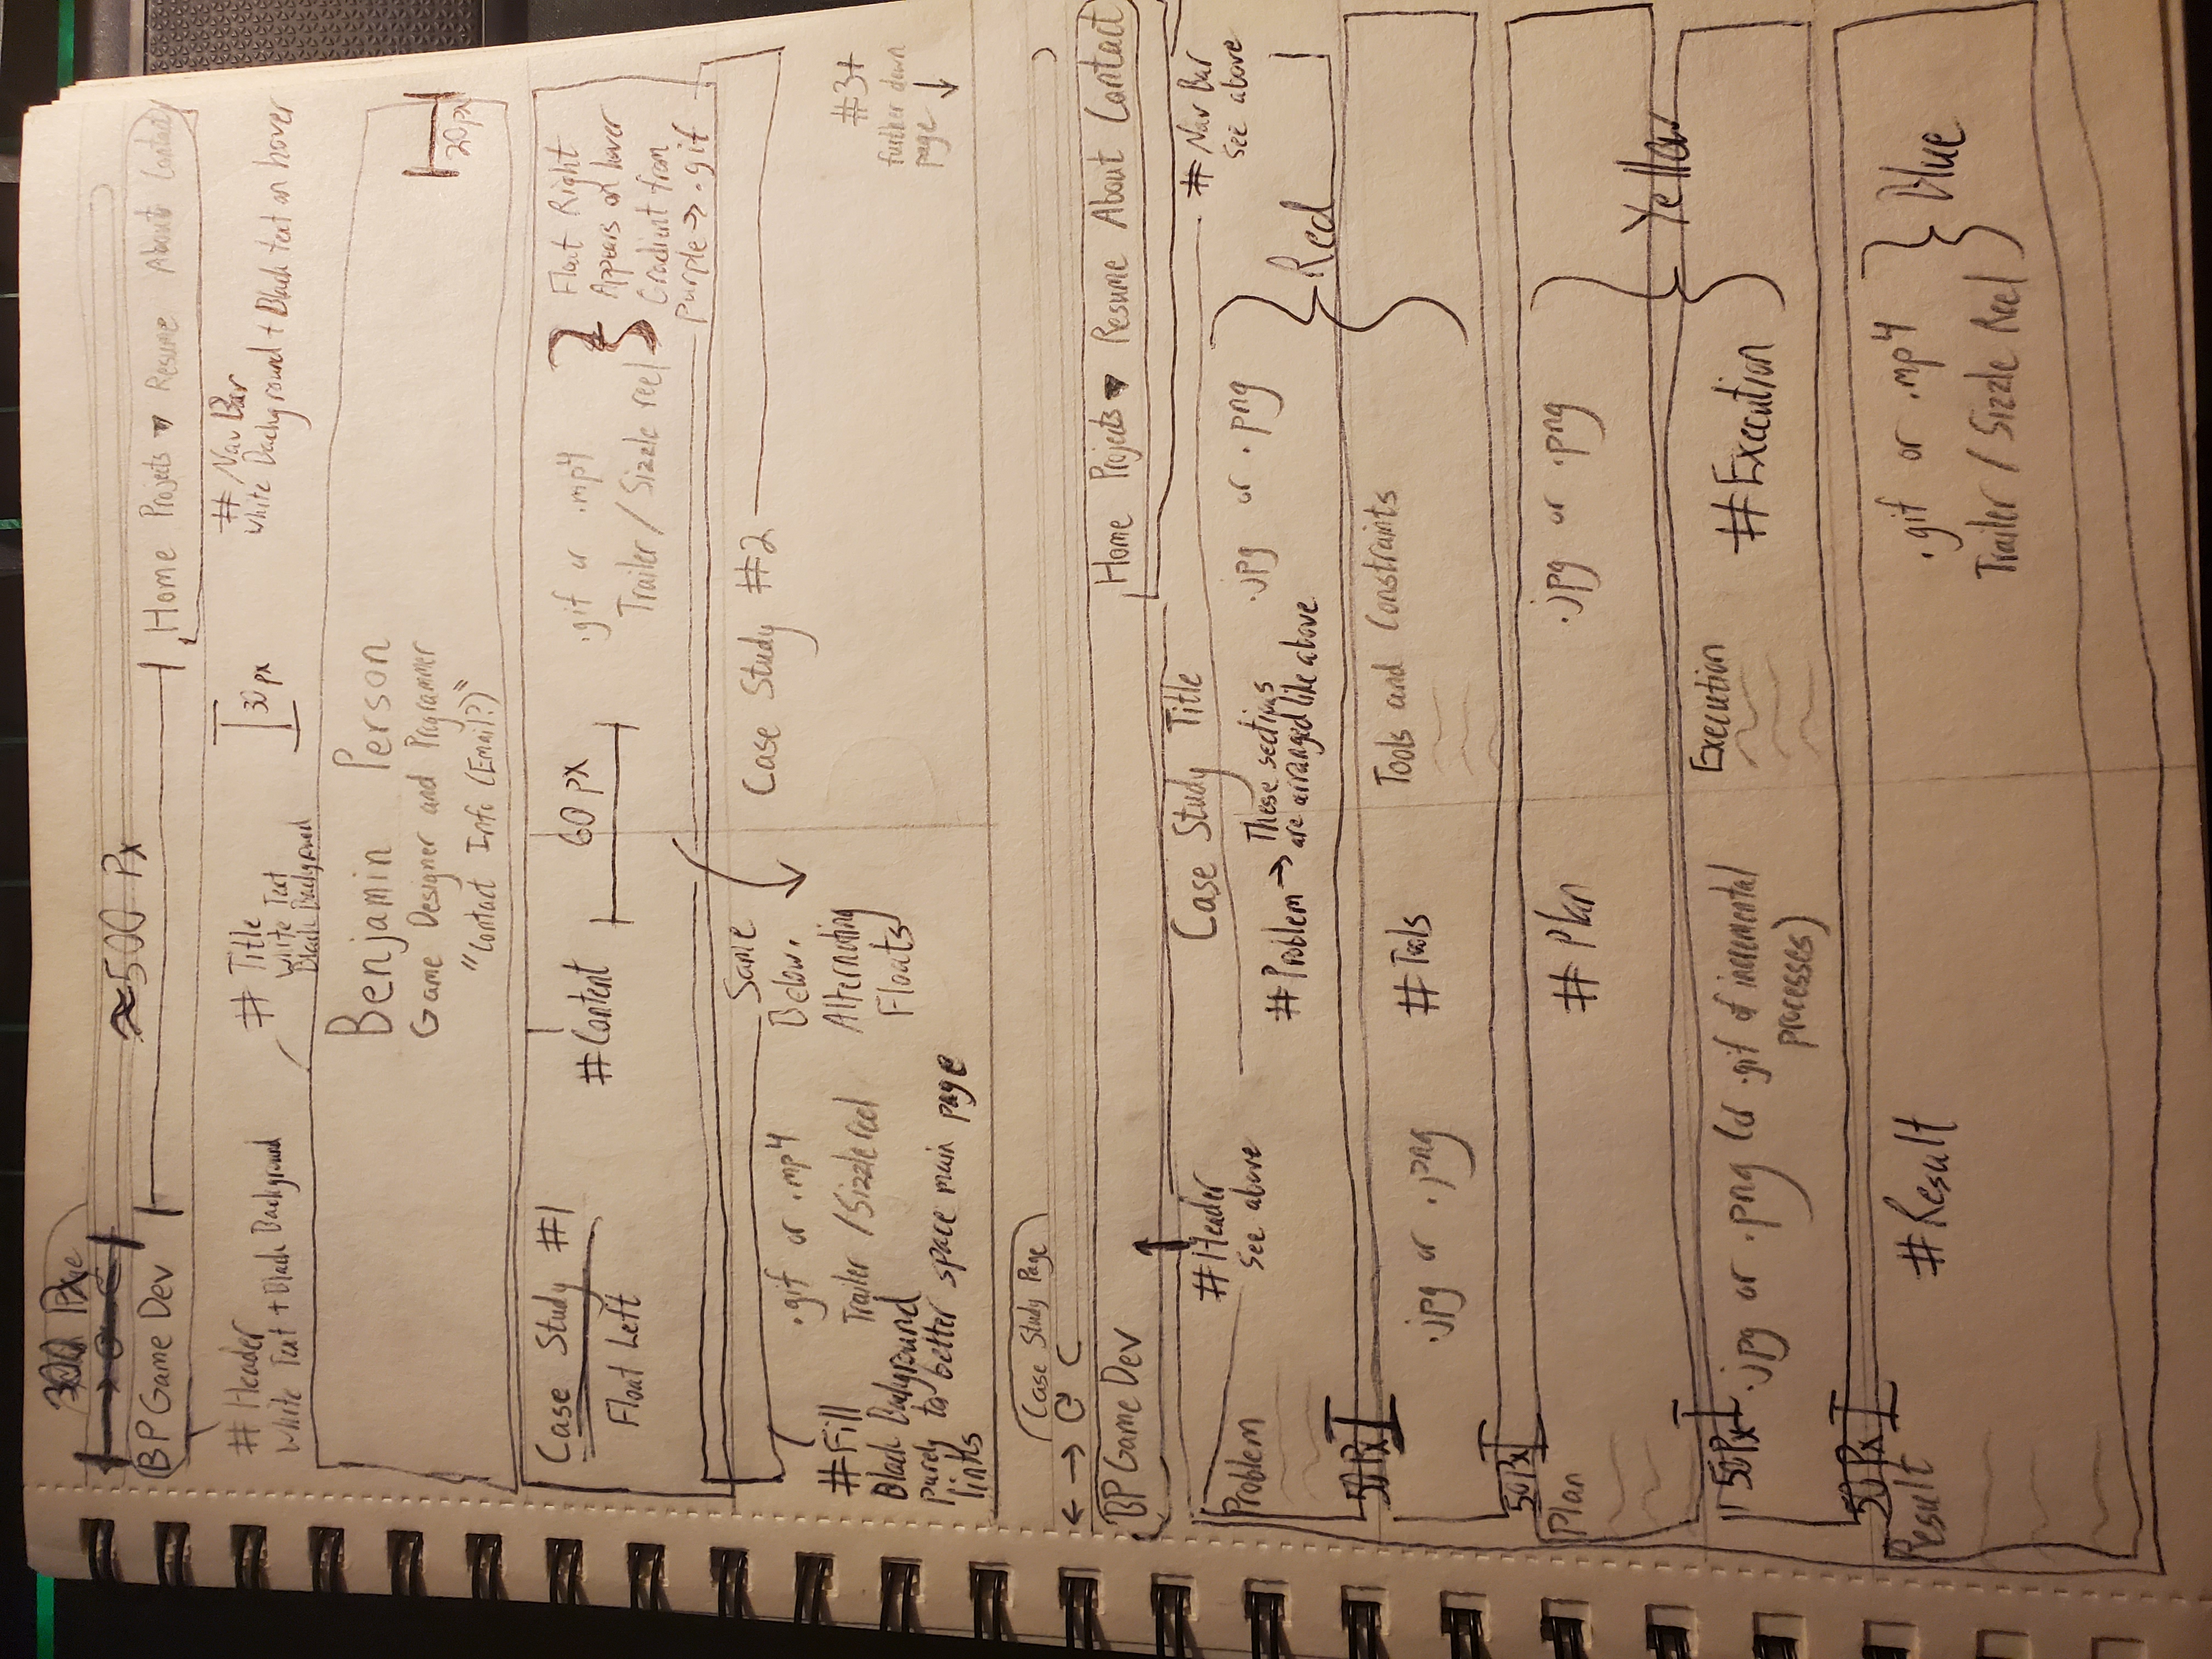 300 Px
≈500 Px
BP Game Dev
Home Projects ▾ Resume About Contact
# Header
White Text + Black Background
# Title
White Text
Black Background
30 px
# Nav Bar
White Background + Black text on hover
Benjamin Person
Game Designer and Programmer
"Contact Info (Email?)"
20px
Case Study #1
Float Left
#Content
60 px
.gif or .mp4
Trailer / Sizzle reel
Float Right
Appears on hover
Gradient from
purple → .gif
Same
Below.
Alternating
Floats
Case Study #2
.gif or .mp4
Trailer / Sizzle reel
#Fill
Black Background
purely to better space main page
links
#3+
further down
page ↓
Case Study Page
← →
BP Game Dev
Home Projects ▾ Resume About Contact
# Header
See above
Case Study Title
# Nav Bar
See above
Problem
# Problem → These sections
are arranged like above
.jpg or .png
Red
50 Px
.jpg or .png
# Tools
Tools and Constraints
50 Px
Plan
# Plan
.jpg or .png
Yellow
50 Px
.jpg or .png (or .gif of incremental
processes)
Execution
#Execution
50 Px
Result
#Result
.gif or .mp4
Trailer / Sizzle Reel
Blue